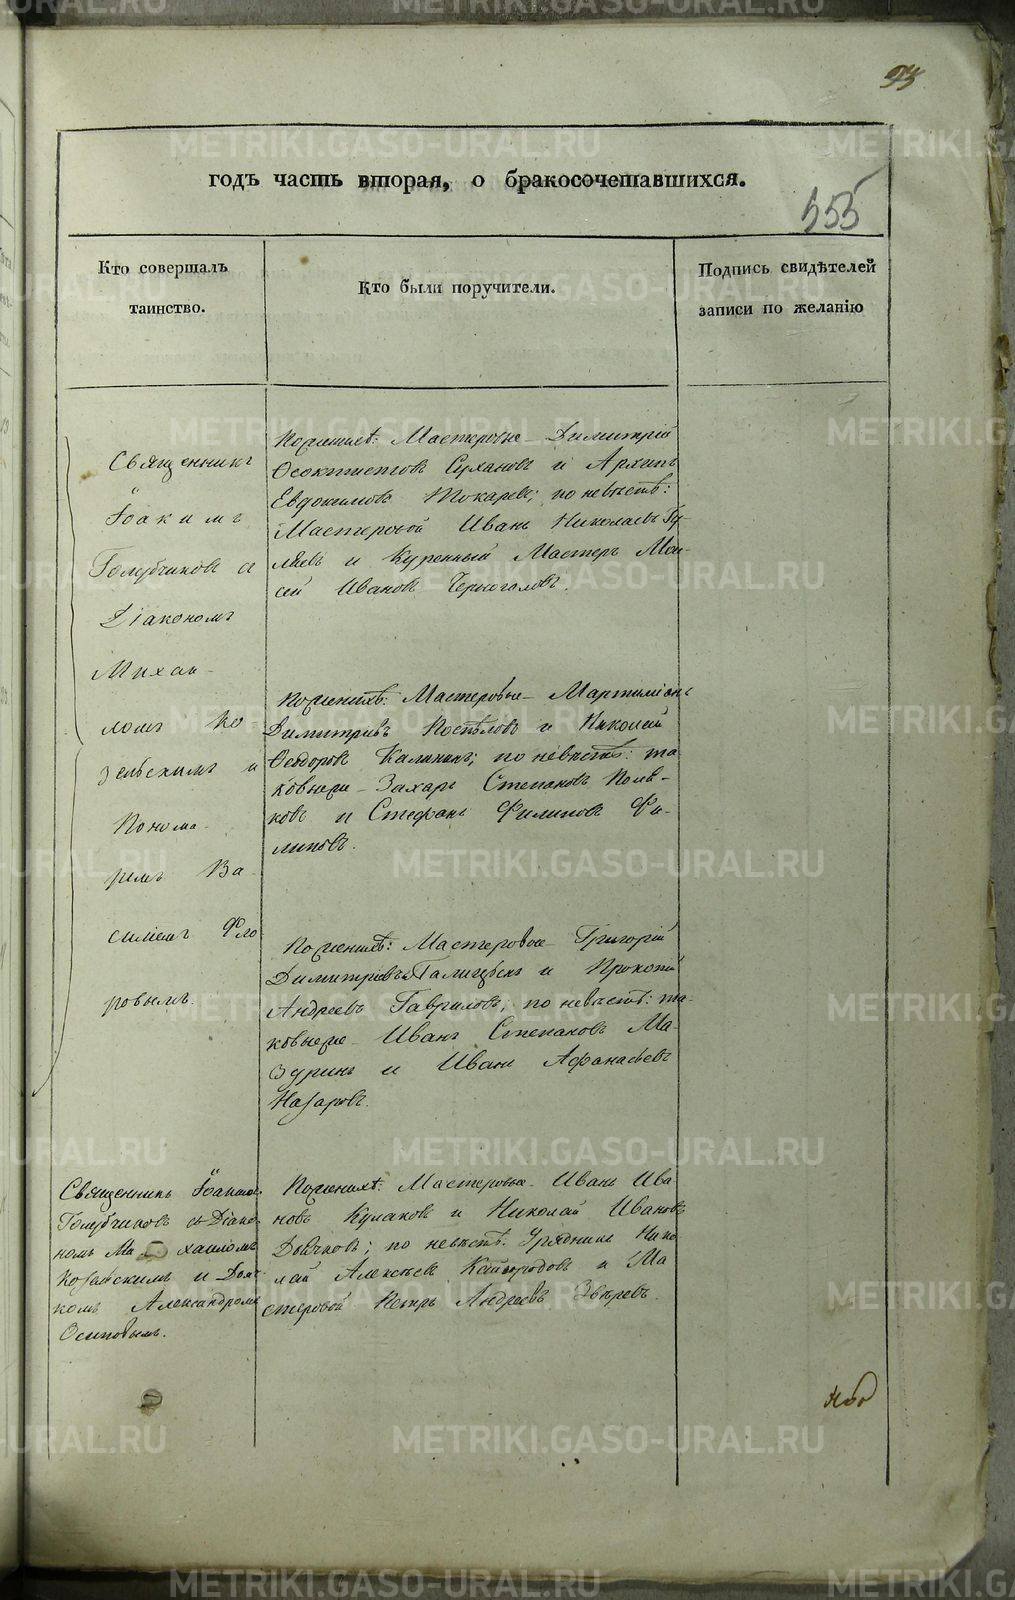 93
годъ часть вторая, о бракосочетавшихся.
555
Кто совершалъ
таинство.
Кто были поручители.
Подпись свидѣтелей
записи по желанію
Священникъ
Іоакимъ
Голубчиковъ съ
Діакономъ
Михаи-
ломъ Ко-
зельскимъ и
Понома-
ремъ Ва-
силіемъ Фло
ровымъ.
По женихѣ: Мастеровые Димитрій
Ѳеоктистовъ Сухановъ и Архипъ
Евдокимовъ Токаревъ; по невѣстѣ:
Мастеровой Иванъ Николаевъ Гу-
ляевъ и Куренный Мастеръ Мои-
сей Ивановъ Черноголовъ.
По женихѣ: Мастеровые Мартиміанъ
Димитріевъ Поспѣловъ и Николай
Ѳеодоровъ Калининъ; по невѣстѣ: та
ковыеже Захаръ Степановъ Поля-
ковъ и Стефанъ Филиповъ Фи-
липовъ.
По женихѣ: Мастеровые Григорій
Димитріевъ Галицынъ и Прокопій
Андреевъ Гавриловъ; по невѣстѣ: та-
ковыеже Иванъ Степановъ Ма-
зуринъ и Иванъ Афанасьевъ
Назаровъ.
Священникъ Іоакимъ
Голубчиковъ съ Діако-
номъ Ми хаиломъ
Козельскимъ и Дьяч
комъ Александромъ
Осиповымъ.
По женихѣ: Мастеровые Иванъ Ива
новъ Кулаковъ и Николай Ивановъ
Дьячковъ; по невѣстѣ: Урядникъ Нико
лай Алексѣевъ Кайгородовъ и Ма
стеровой Петръ Андреевъ Звѣревъ.
METRIKI.GASO-URAL.RU